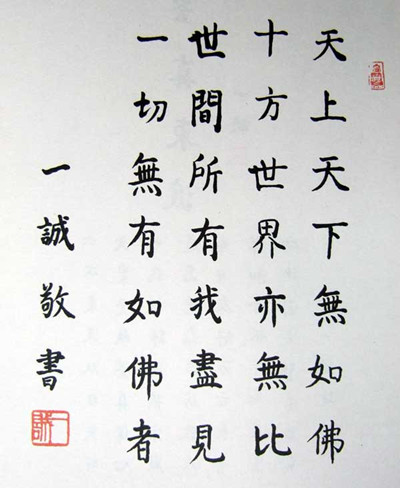 天上天下無如佛
十方世界亦無比
世間所有我盡見
一切無有如佛者
一誠敬書
一誠